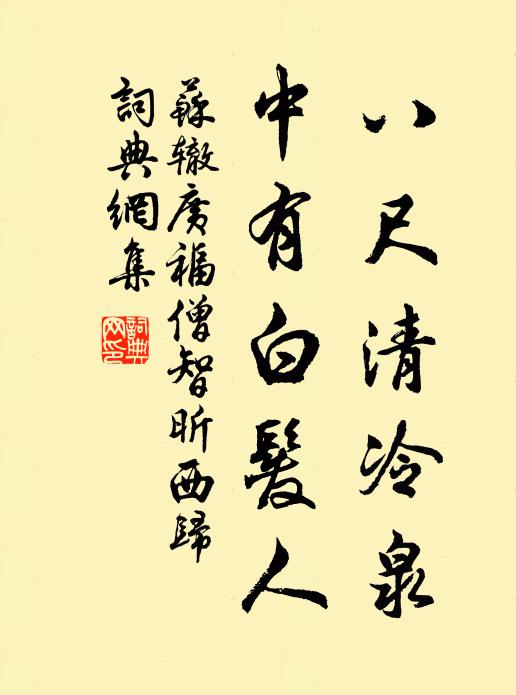 八尺清冷泉
中有白髮人
蘇辙廣福僧智昕西歸
詞典網集
詞典网印